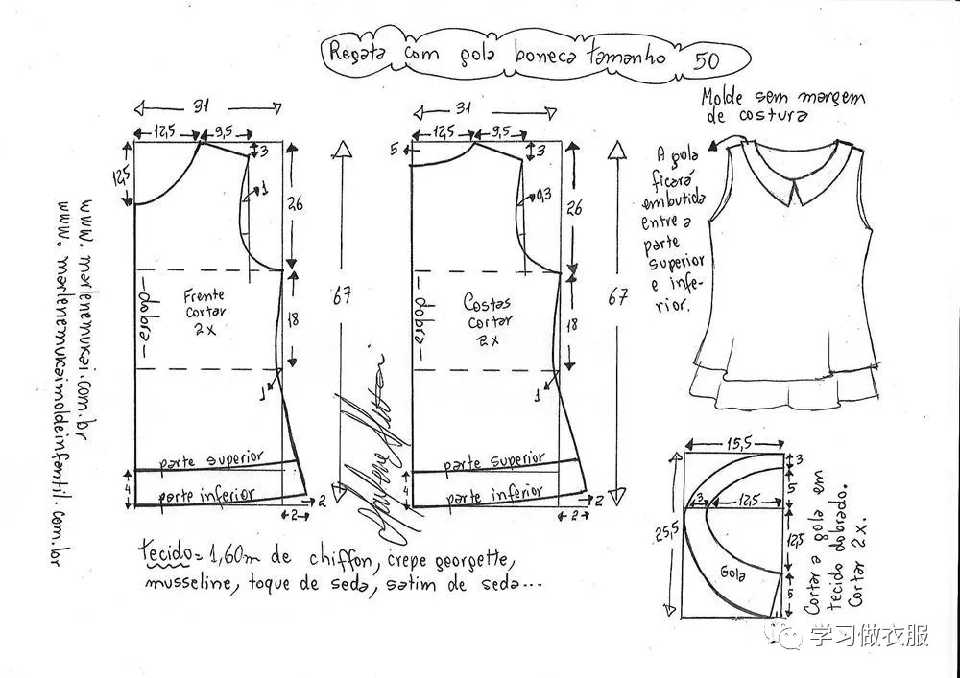 Regata com gola boneca tamanho 50
31
12,5
9,5
3
12,5
1
26
Frente
cortar
2x
-dobra-
18
1
parte superior
parte inferior
4
2
2
67
31
12,5
9,5
5
3
0,3
26
Costas
cortar
2x
-dobra-
18
1
parte superior
parte inferior
4
2
2
67
Molde sem margem
de costura
A gola
ficará
embutida
entre a
parte
superior
e infe-
rior.
15,5
3
5
3
12,5
25,5
12,5
Gola
5
Cortar a gola em
tecido dobrado.
Cortar 2x.
tecido = 1,60m de chiffon, crepe georgette,
musseline, toque de seda, satim de seda...
www.marlenemukai.com.br
www.marlenemukaimoldeinfantil.com.br
学习做衣服